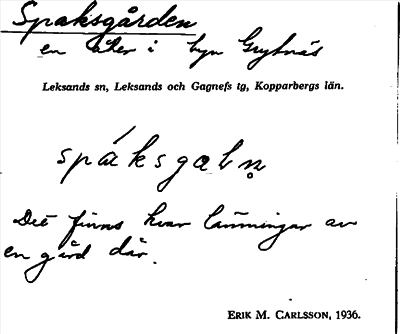 Spaksgården
en åker i byn Grytnäs
Leksands sn, Leksands och Gagnefs tg, Kopparbergs län.
spáksgaln̥
Det finns kvar lämningar av
en gård där.
ERIK M. CARLSSON, 1936.